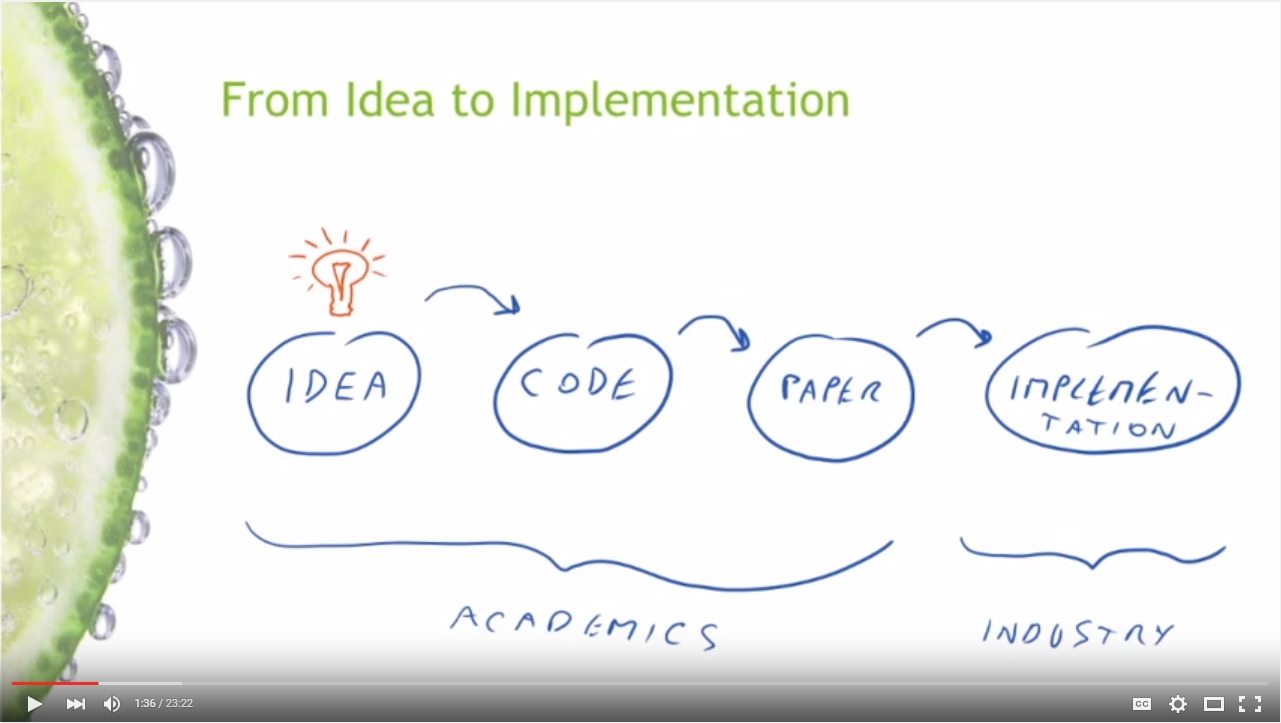 From Idea to Implementation
IDEA
CODE
PAPER
IMPLEMEN-
TATION
ACADEMICS
INDUSTRY
1:36 / 23:22
CC